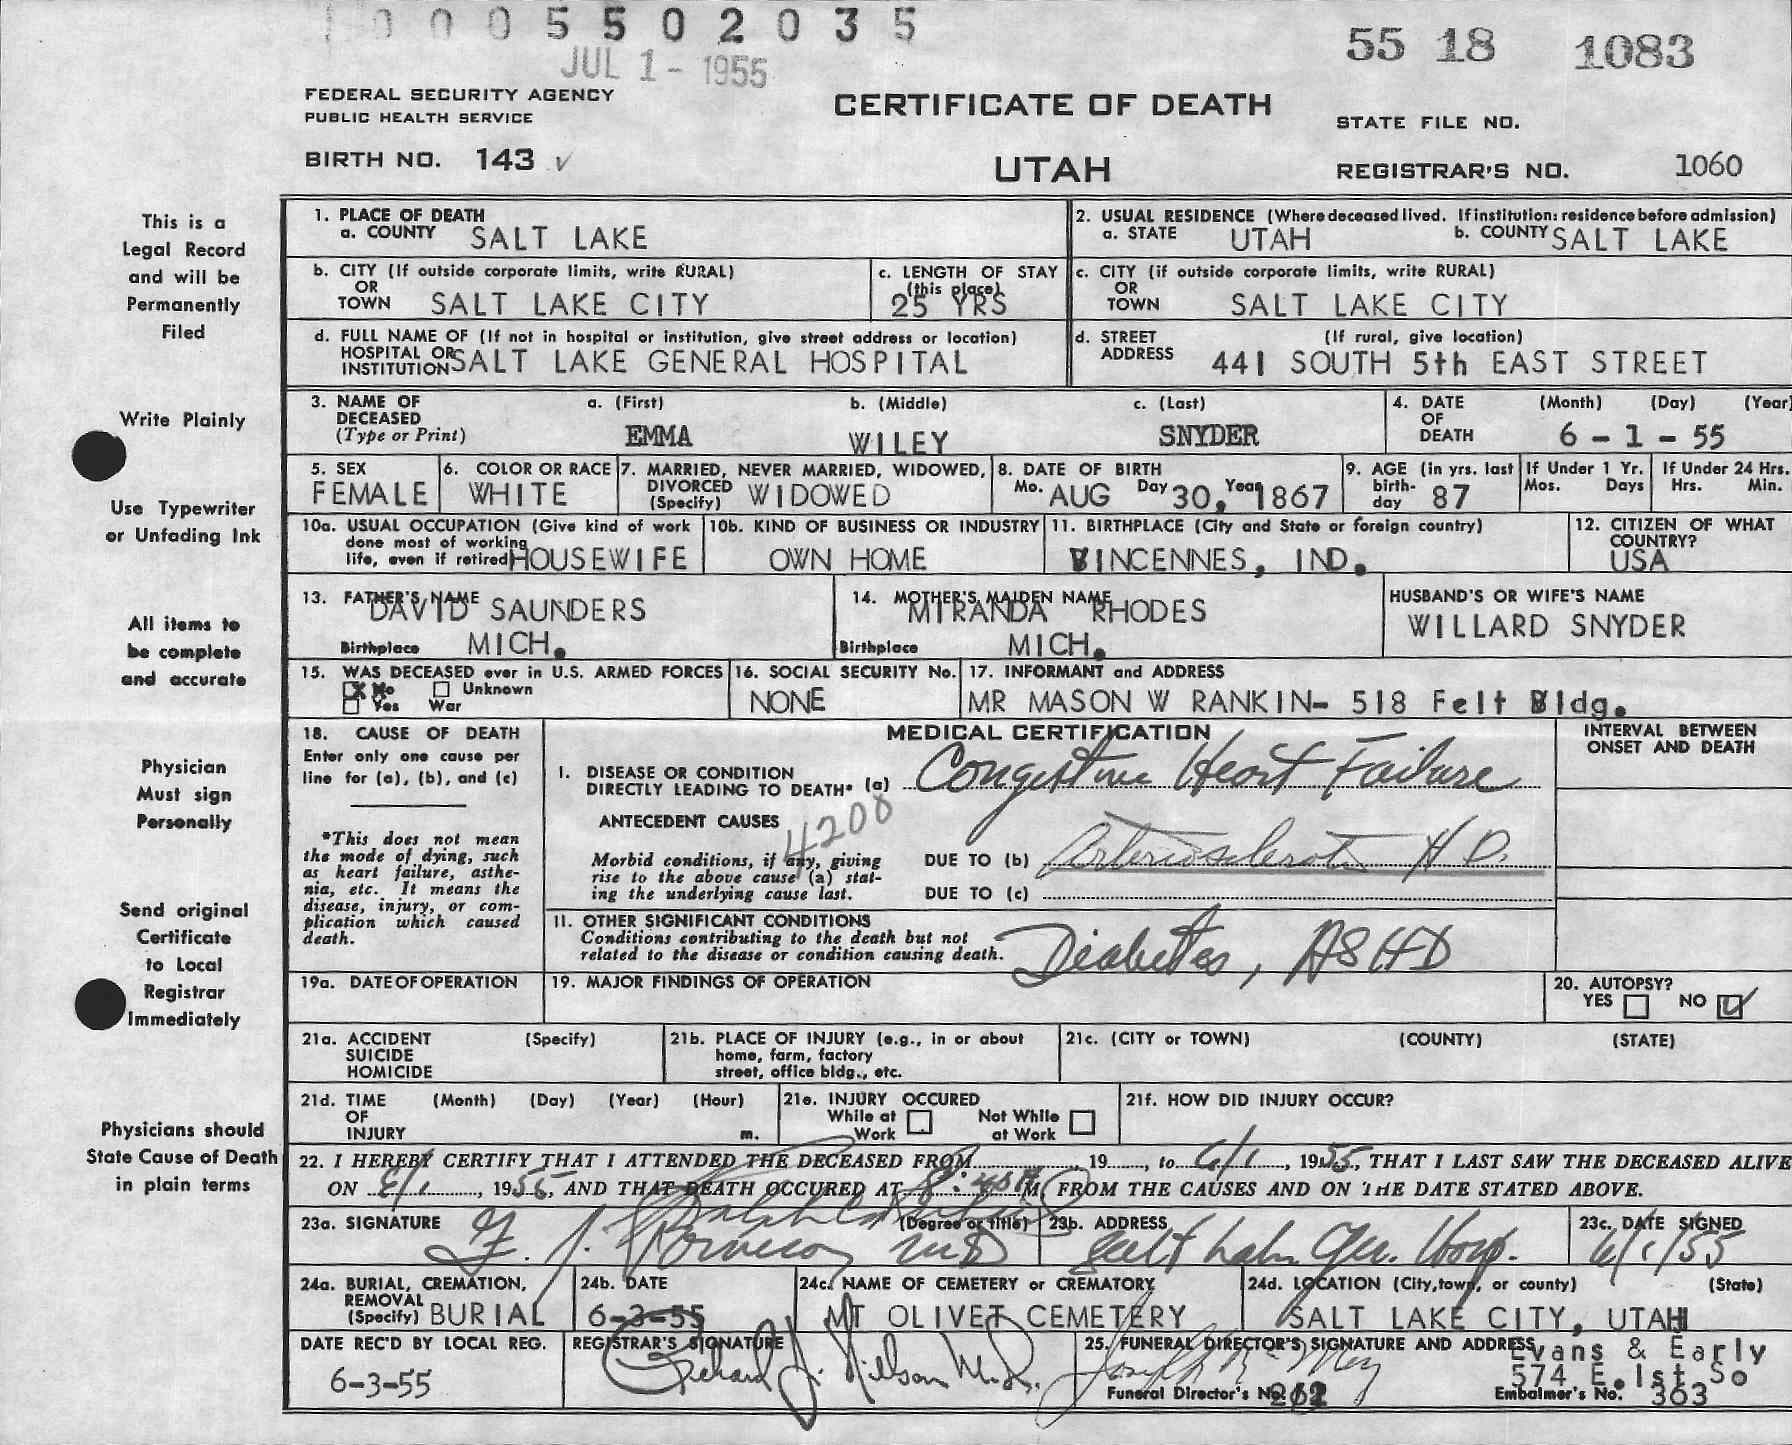 0005502035
JUL 1 - 1955
55 18 1083
FEDERAL SECURITY AGENCY
PUBLIC HEALTH SERVICE
CERTIFICATE OF DEATH
STATE FILE NO.
BIRTH NO. 143
UTAH
REGISTRAR'S NO. 1060
This is a
Legal Record
and will be
Permanently
Filed
Write Plainly
Use Typewriter
or Unfading Ink
All items to
be complete
and accurate
Physician
Must sign
Personally
Send original
Certificate
to Local
Registrar
Immediately
Physicians should
State Cause of Death
in plain terms
1. PLACE OF DEATH
a. COUNTY SALT LAKE
2. USUAL RESIDENCE (Where deceased lived. If institution: residence before admission)
a. STATE UTAH b. COUNTY SALT LAKE
b. CITY (If outside corporate limits, write RURAL)
OR
TOWN SALT LAKE CITY
c. LENGTH OF STAY
(this place)
25 YRS
c. CITY (if outside corporate limits, write RURAL)
OR
TOWN SALT LAKE CITY
d. FULL NAME OF (If not in hospital or institution, give street address or location)
HOSPITAL OR
INSTITUTION SALT LAKE GENERAL HOSPITAL
d. STREET (If rural, give location)
ADDRESS 441 SOUTH 5th EAST STREET
3. NAME OF
DECEASED
(Type or Print)
a. (First) b. (Middle) c. (Last)
EMMA WILEY SNYDER
4. DATE (Month) (Day) (Year)
OF
DEATH 6 - 1 - 55
5. SEX
FEMALE
6. COLOR OR RACE
WHITE
7. MARRIED, NEVER MARRIED, WIDOWED,
DIVORCED
(Specify) WIDOWED
8. DATE OF BIRTH
Mo. AUG Day 30, Year 1867
9. AGE (in yrs. last
birth-
day 87
If Under 1 Yr.
Mos. Days
If Under 24 Hrs.
Hrs. Min.
10a. USUAL OCCUPATION (Give kind of work
done most of working
life, even if retired HOUSEWIFE
10b. KIND OF BUSINESS OR INDUSTRY
OWN HOME
11. BIRTHPLACE (City and State or foreign country)
VINCENNES, IND.
12. CITIZEN OF WHAT
COUNTRY?
USA
13. FATHER'S NAME
DAVID SAUNDERS
Birthplace MICH.
14. MOTHER'S MAIDEN NAME
MIRANDA RHODES
Birthplace MICH.
HUSBAND'S OR WIFE'S NAME
WILLARD SNYDER
15. WAS DECEASED ever in U.S. ARMED FORCES
X No Unknown
Yes War
16. SOCIAL SECURITY No.
NONE
17. INFORMANT and ADDRESS
MR MASON W RANKIN- 518 Felt Bldg.
18. CAUSE OF DEATH
Enter only one cause per
line for (a), (b), and (c)
*This does not mean
the mode of dying, such
as heart failure, asthe-
nia, etc. It means the
disease, injury, or com-
plication which caused
death.
MEDICAL CERTIFICATION
INTERVAL BETWEEN
ONSET AND DEATH
I. DISEASE OR CONDITION
DIRECTLY LEADING TO DEATH* (a) Congestive Heart Failure
ANTECEDENT CAUSES
4200
Morbid conditions, if any, giving
rise to the above cause (a) stat-
ing the underlying cause last.
DUE TO (b) Arteriosclerotic H D.
DUE TO (c)
II. OTHER SIGNIFICANT CONDITIONS
Conditions contributing to the death but not
related to the disease or condition causing death.
Diabetes, ASHD
19a. DATE OF OPERATION
19. MAJOR FINDINGS OF OPERATION
20. AUTOPSY?
YES NO
21a. ACCIDENT (Specify)
SUICIDE
HOMICIDE
21b. PLACE OF INJURY (e.g., in or about
home, farm, factory
street, office bldg., etc.
21c. (CITY or TOWN) (COUNTY) (STATE)
21d. TIME (Month) (Day) (Year) (Hour)
OF
INJURY m.
21e. INJURY OCCURED
While at Work Not While at Work
21f. HOW DID INJURY OCCUR?
22. I HEREBY CERTIFY THAT I ATTENDED THE DECEASED FROM 19, to 6/1, 1955, THAT I LAST SAW THE DECEASED ALIVE
ON 6/1, 1955, AND THAT DEATH OCCURED AT 8:45 M, FROM THE CAUSES AND ON THE DATE STATED ABOVE.
23a. SIGNATURE (Degree or title)
MD
23b. ADDRESS
Salt Lake Gen. Hosp.
23c. DATE SIGNED
6/1/55
24a. BURIAL, CREMATION,
REMOVAL
(Specify) BURIAL
24b. DATE
6-3-55
24c. NAME OF CEMETERY or CREMATORY
MT OLIVET CEMETERY
24d. LOCATION (City, town, or county) (State)
SALT LAKE CITY, UTAH
DATE REC'D BY LOCAL REG.
6-3-55
REGISTRAR'S SIGNATURE
Richard J. Nilson M.D.
25. FUNERAL DIRECTOR'S SIGNATURE AND ADDRESS
Evans & Early
574 E. 1st So
Funeral Director's No.
Embalmer's No. 363